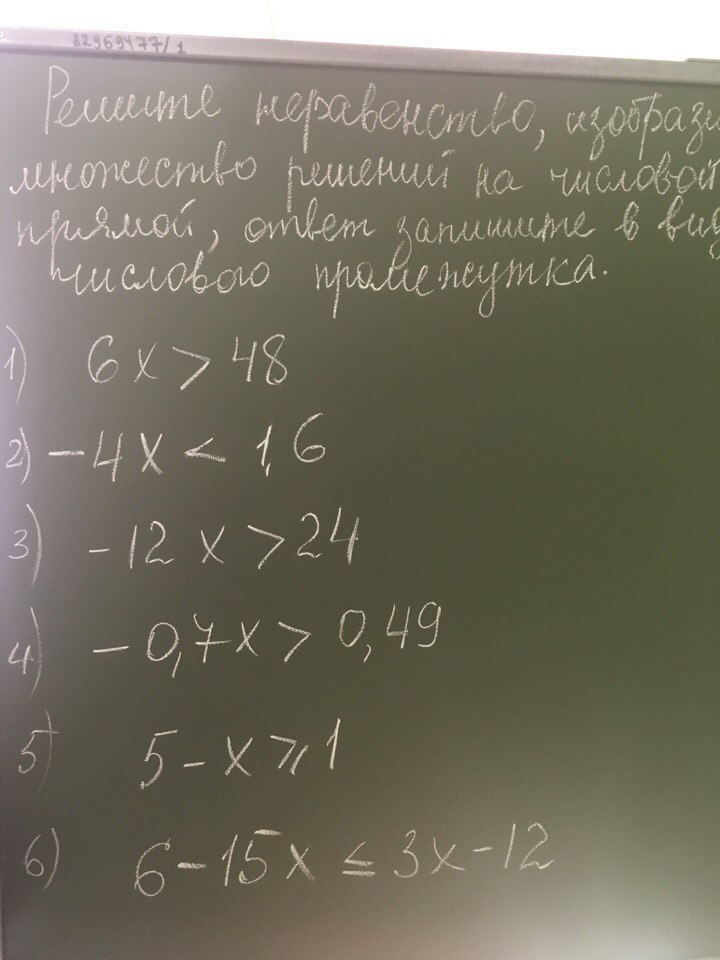 82969477/1
Решите неравенство, изобрази
множество решений на числовой
прямой, ответ запишите в вид
числового промежутка.
1) 6x > 48
2) -4x < 1,6
3) -12x > 24
4) -0,7x > 0,49
5) 5-x ⩾ 1
6) 6-15x ≤ 3x-12